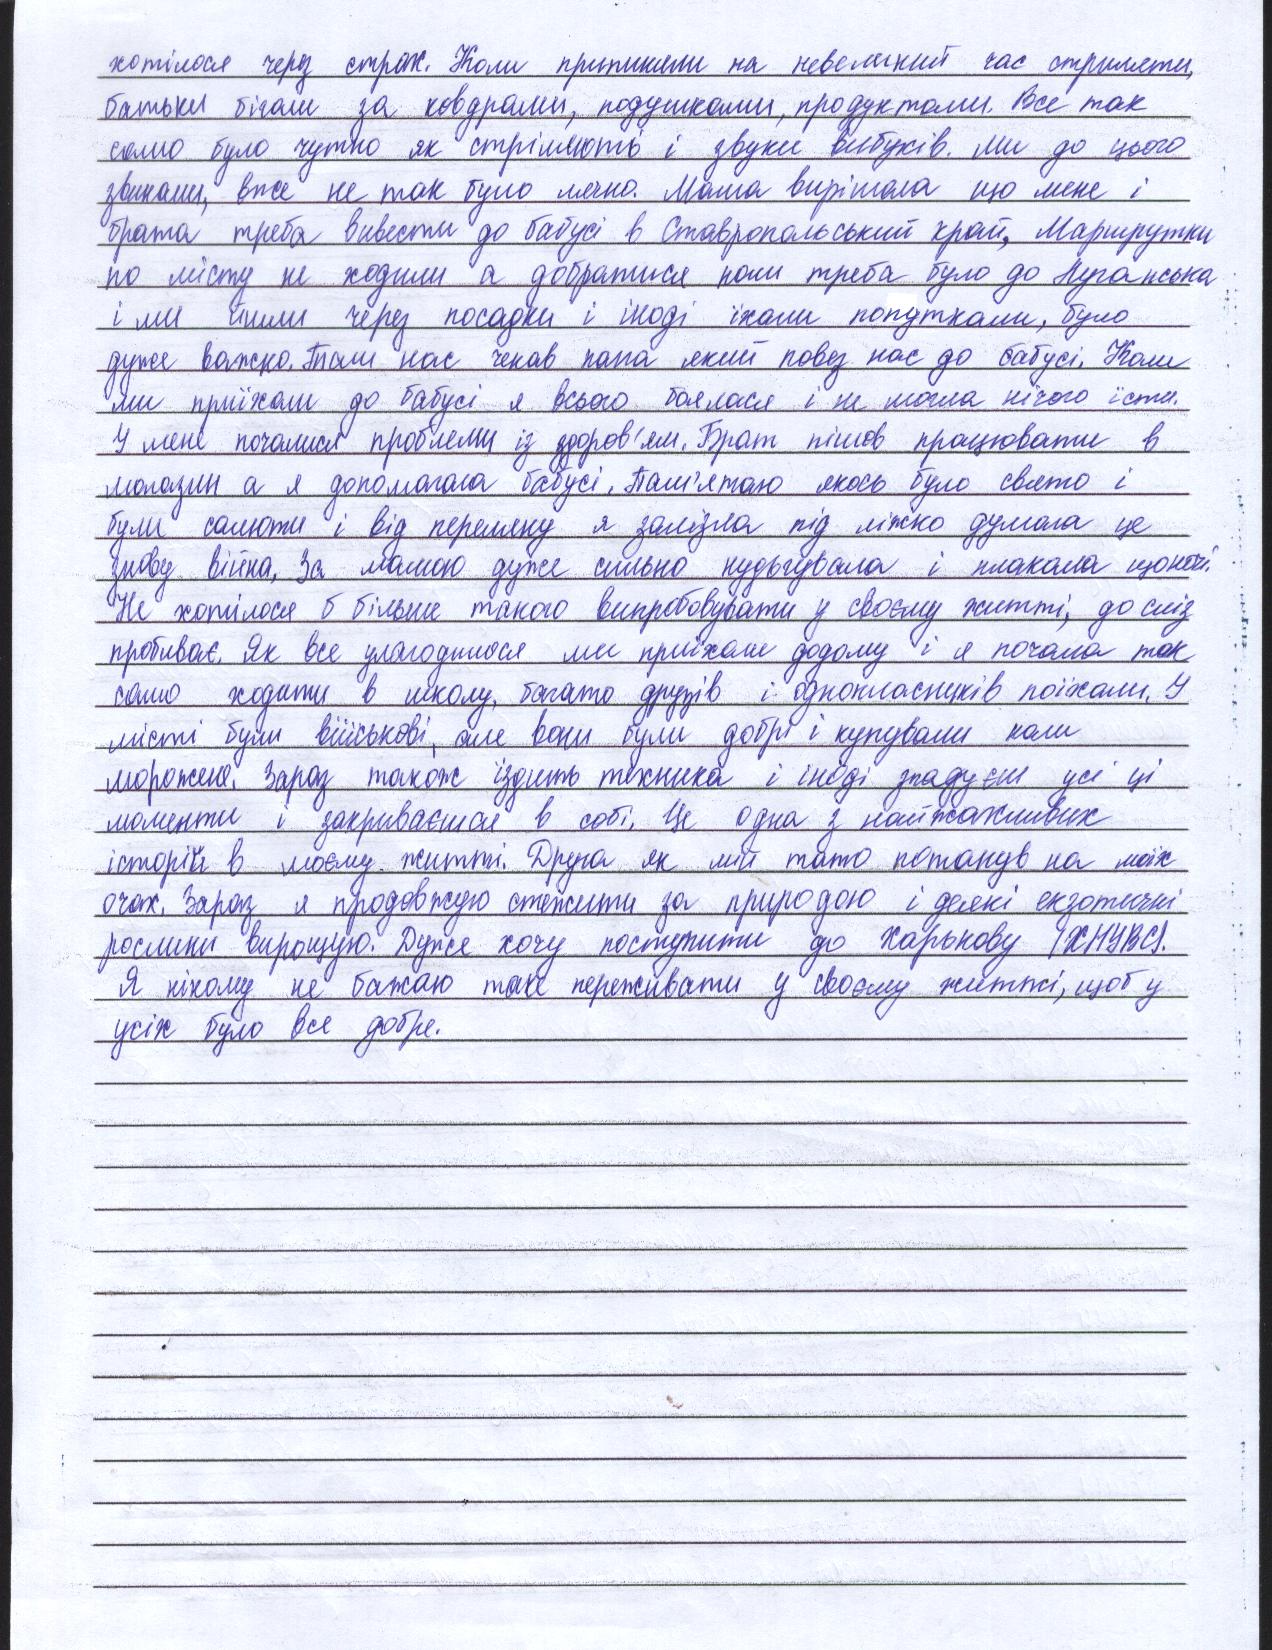 хотілося через страх. Коли припинили на невеликий час стриляти,
батьки бігали за ковдрами, подушками, продуктами. Все так
само було чутно як стріляють і звуки вибухів. Ми до цього
звикали, вже не так було лячно. Мама вирішала що мене і
брата треба вивести до бабусі в Ставропольський край, Маршрутки
по місту не ходили а добратися нам треба було до Луганська
і ми йшли через посадки і іноді їхали попутками, було
дуже важко. Там нас чекав папа який повез нас до бабусі. Коли
ми приїхали до бабусі я всього боялася і не могла нічого їсти.
У мене почалися проблеми із здоров'ям. Брат пішов працювати в
магазин а я допомагала бабусі. Пам'ятаю якось було свято і
були салюти і від переляку я залізла під ліжко думала це
знову війна, За мамою дуже сильно нудьгувала і плакала щоночі.
Не хотілося б більше такого випробовувати у своєму житті, до сліз
пробиває. Як все улагодилося ми приїхали додому і я почала так
само ходити в школу, багато друзів і однокласників поїхали. У
місті були військові, але вони були добрі і купували нам
морожене. Зараз також їздить техніка і іноді згадуєш усі ці
моменти і закриваєшся в собі. Це одна з найжахливих
історій в моєму житті. Друга як мій тато потанув на моїх
очах. Зараз я продовжую стежити за природою і деякі екзотичні
рослини вирощую. Дуже хочу поступити до Харькову (ХНУВС).
Я нікому не бажаю таке переживати у своєму житті, щоб у
усіх було все добре.